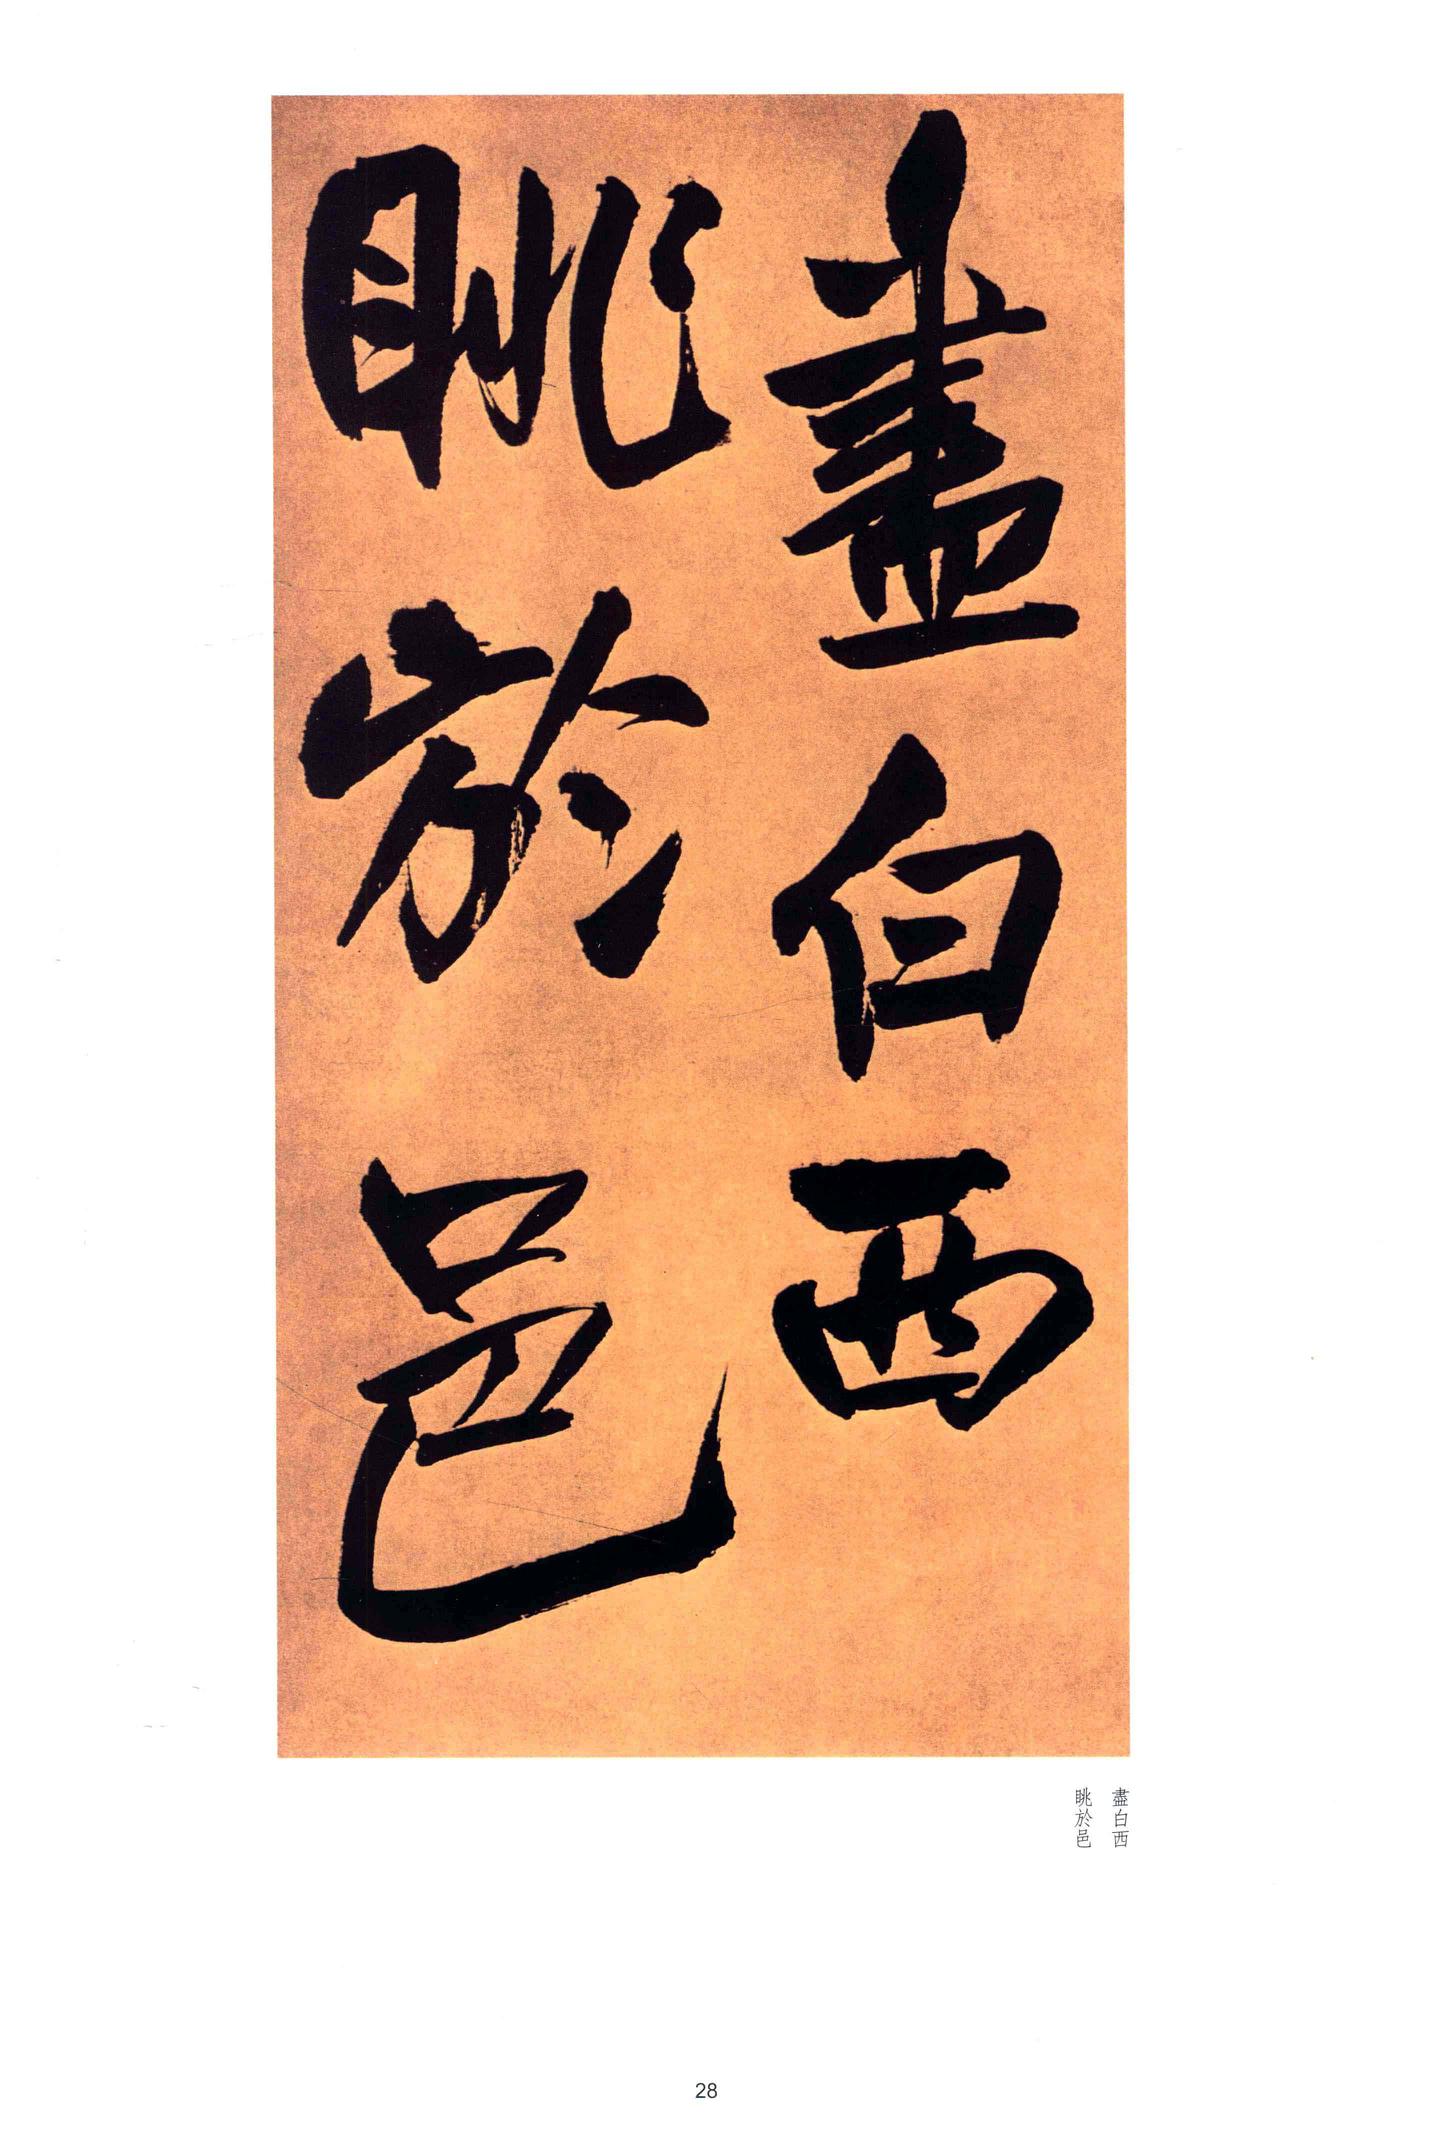 盡白西
眺於邑
盡白西
眺於邑
28